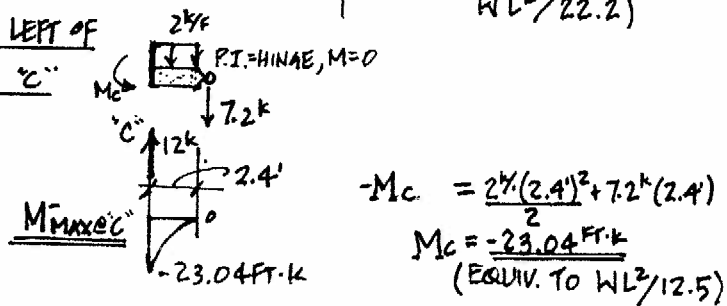 WL²/22.2)
LEFT OF
"C"
2k/F
P.I.=HINGE, M=0
Mc
7.2k
"C"
12k
2.4'
0
M⁻MAX@"C"
-23.04 FT·K
-Mc = 2k/'(2.4')²/2 + 7.2k (2.4')
Mc = -23.04 FT·K
(EQUIV. TO WL²/12.5)